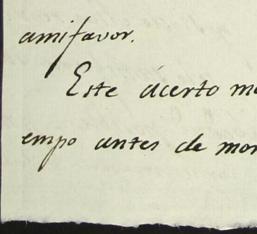 amifavor.
Este acerto m
empo antes de mor